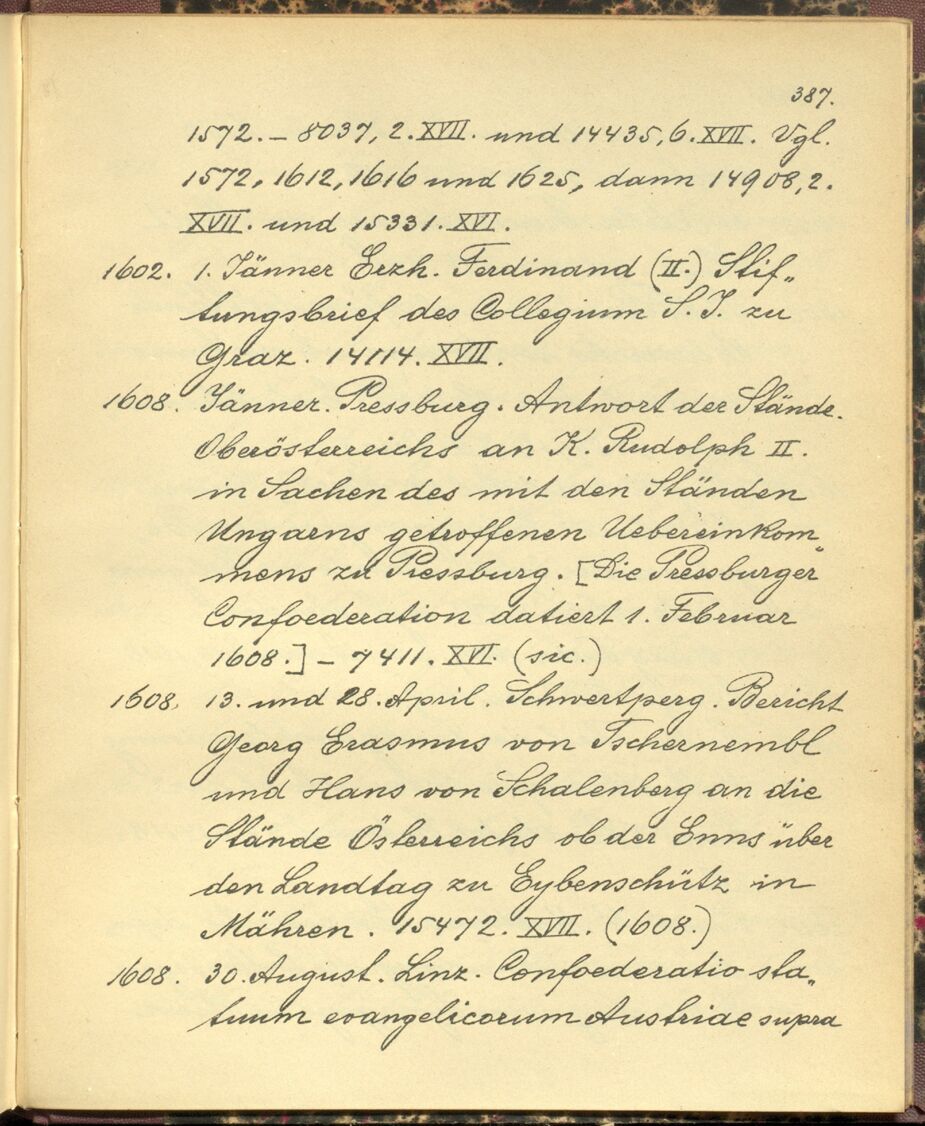 387.
1572. – 8037, 2. XVII. und 14435, 6. XVII. Vgl.
1572, 1612, 1616 und 1625, dann 14908, 2.
XVII. und 15331. XVI.
1602. 1. Jänner Erzh. Ferdinand (II.) Stif„
tungsbrief des Collegium S. J. zu
Graz. 14114. XVII.
1608. Jänner. Pressburg. Antwort der Stände
Oberösterreichs an K. Rudolph II.
in Sachen des mit den Ständen
Ungarns getroffenen Uebereinkom„
mens zu Pressburg. [Die Pressburger
Confoederation datiert 1. Februar
1608.] – 7411. XVI. (sic.)
1608. 13. und 28. April. Schwertperg. Bericht
Georg Erasmus von Tschernembl
und Hans von Schalenberg an die
Stände Österreichs ob der Enns über
den Landtag zu Eybenschütz in
Mähren. 15472. XVII. (1608.)
1608. 30. August. Linz. Confoederatio sta„
tuum evangelicorum Austriae supra